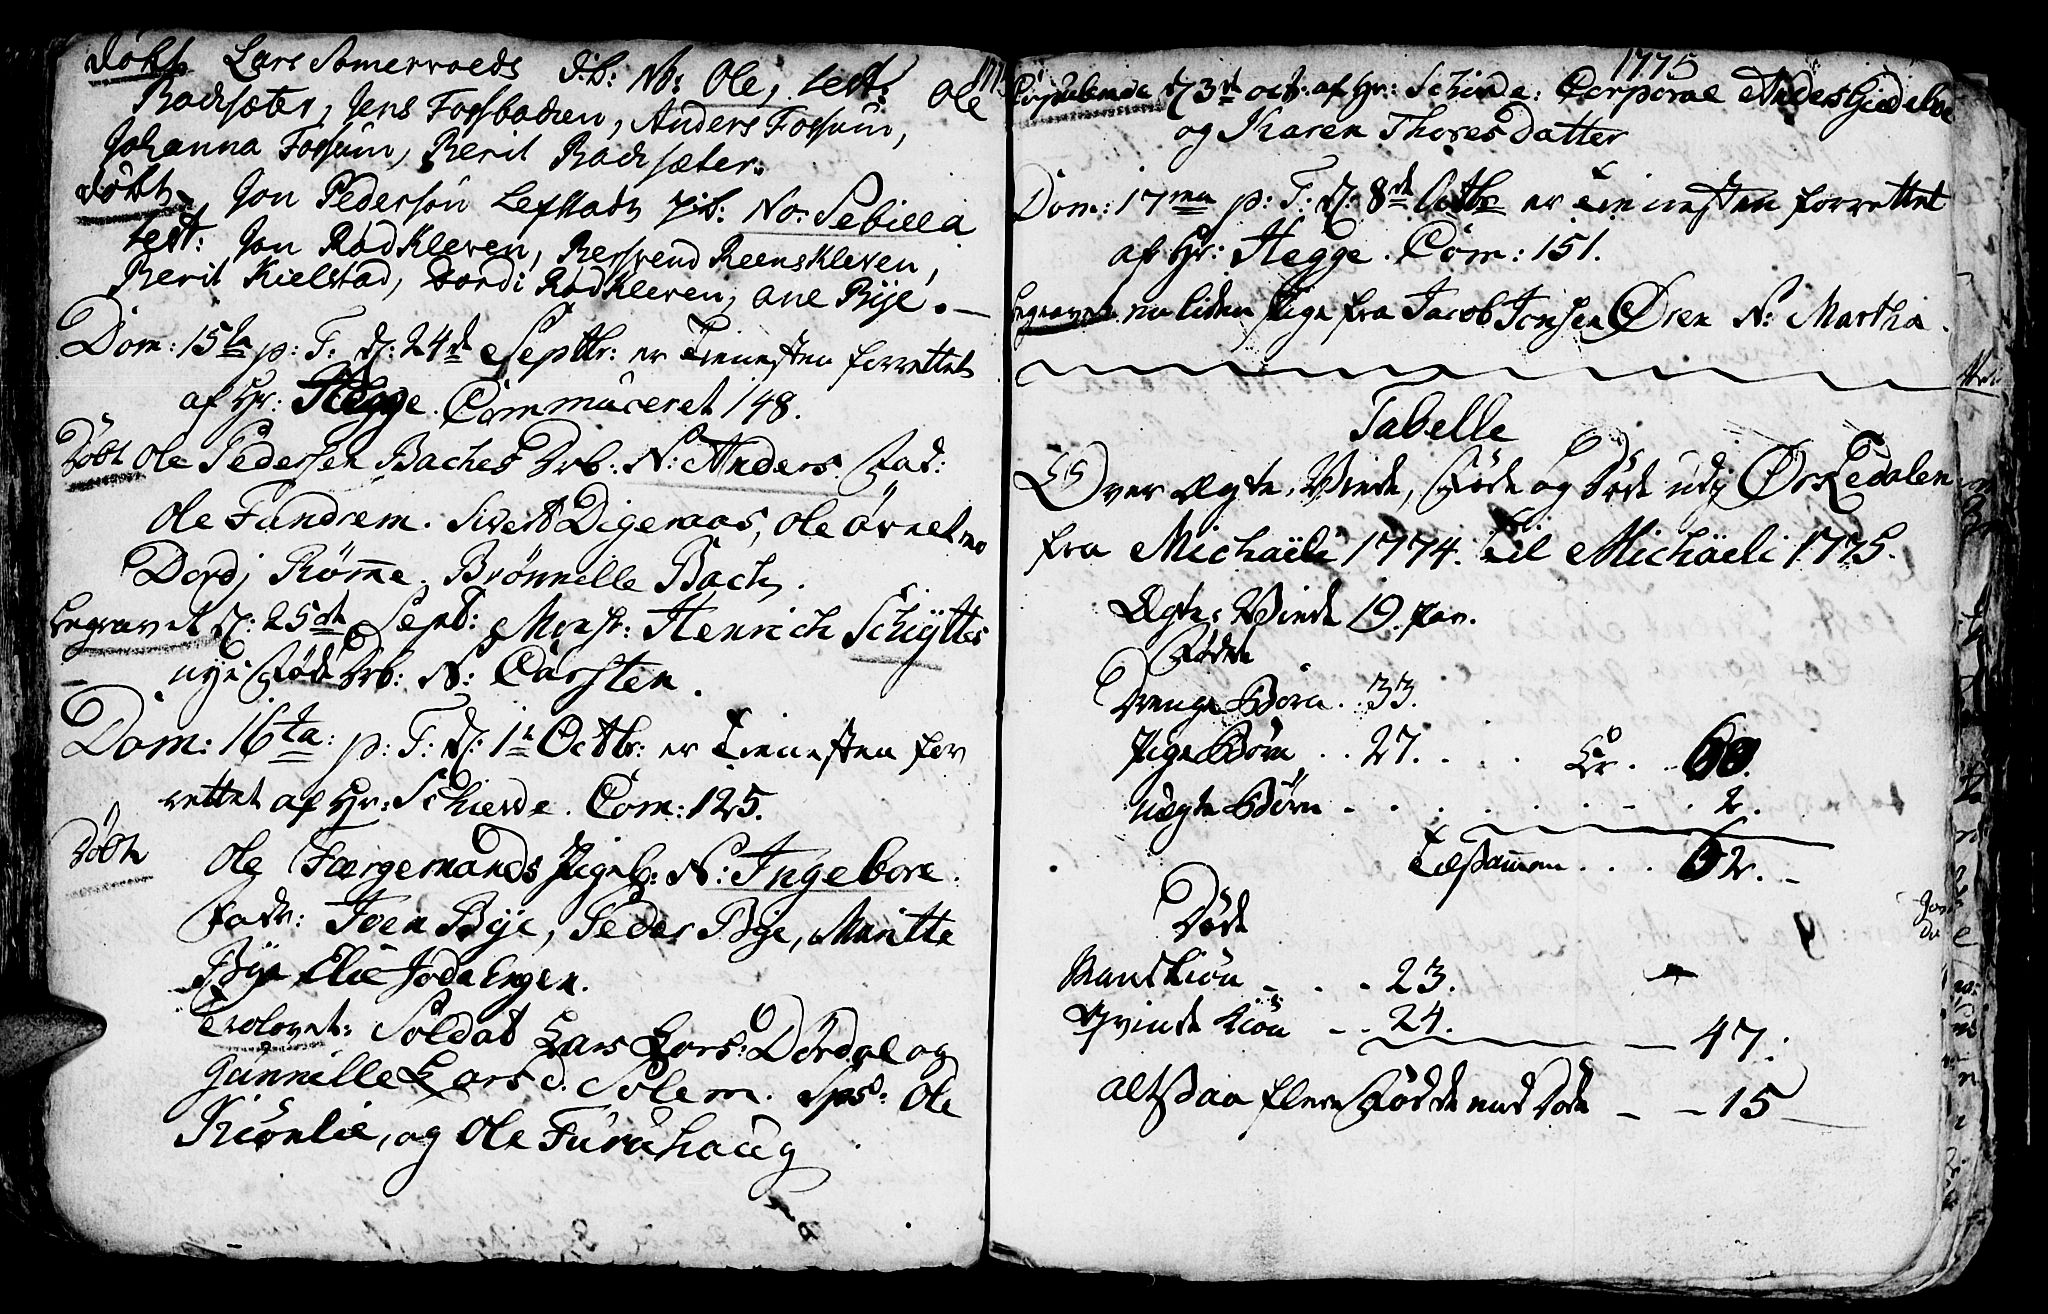 døbt Lars Somervolds d:b: No: Ole, test: Ole
Bachsæter, Jens Fossbacken, Anders Fossum,
Johanna Fossum, Berit Bachsæter.
døbt Jon Pedersøn Lefstads p:b: No: Sebilla
test: Jon Rødkleven, Bersvend Reenskleven,
Berit Kielstad, Dordi Rødkleven, ane Bye. —
Dom: 15ta p: T: d: 24de Septbr: er Tienesten forrettet
af Hr: Hegge. Communiceret 148.
Døbt Ole Pedersen Baches Drb: N: Anders. Fad:
Ole Fandrem. Sivert Digeraas, Ole
Dordj Römme. Brönnille Bach.
Begravet d: 25de Sept: Monsr: Henrich Schiyttes
nye Födt Drb: N: Carsten.
Dom: 16ta: p: T: d: 1te Octbr: er Tienesten for
rettet af Hr: Schierde. Com: 125.
Døbt Ole Færgemands Pigeb: N: Ingebore.
Fadr: Iven Bye, Peder Bye, Maritte
Bye Elie
Trolovet: Soldat Lars Lars: Dördal og
Gunnille Larsd. Solem. Sps: Ole
Kiönlie, og Ole Furuhaug
1775
Copulerede d 3de oct: af Hr: Schirde: Corporal Anders
og Karen Thores datter
Dom: 17ma p: T: d: 8de Octbr er Tienesten forrettet
af Hr: Hegge. Com: 151.
Begravet en liden Pige fra Jacob Jonsen Øren N: Martha.
Tabelle
Over Ægte-Viede, Föde og Döde udj Ørkedalen
fra Michaëli 1774. til Michäeli 1775.
Ægte-Viede 19. par.
Födte
Drenge Börn . 33.
Pige Börn . . 27. . . . Er . . 60.
uægte Börn . . . . . . . . 2.
Tilsammen . . . 62. –
Döde
Mandkiön – . . 23.
Qvinde kiön – . . 24. — 47.
altsaa flere Födde end Döde – – 15 –